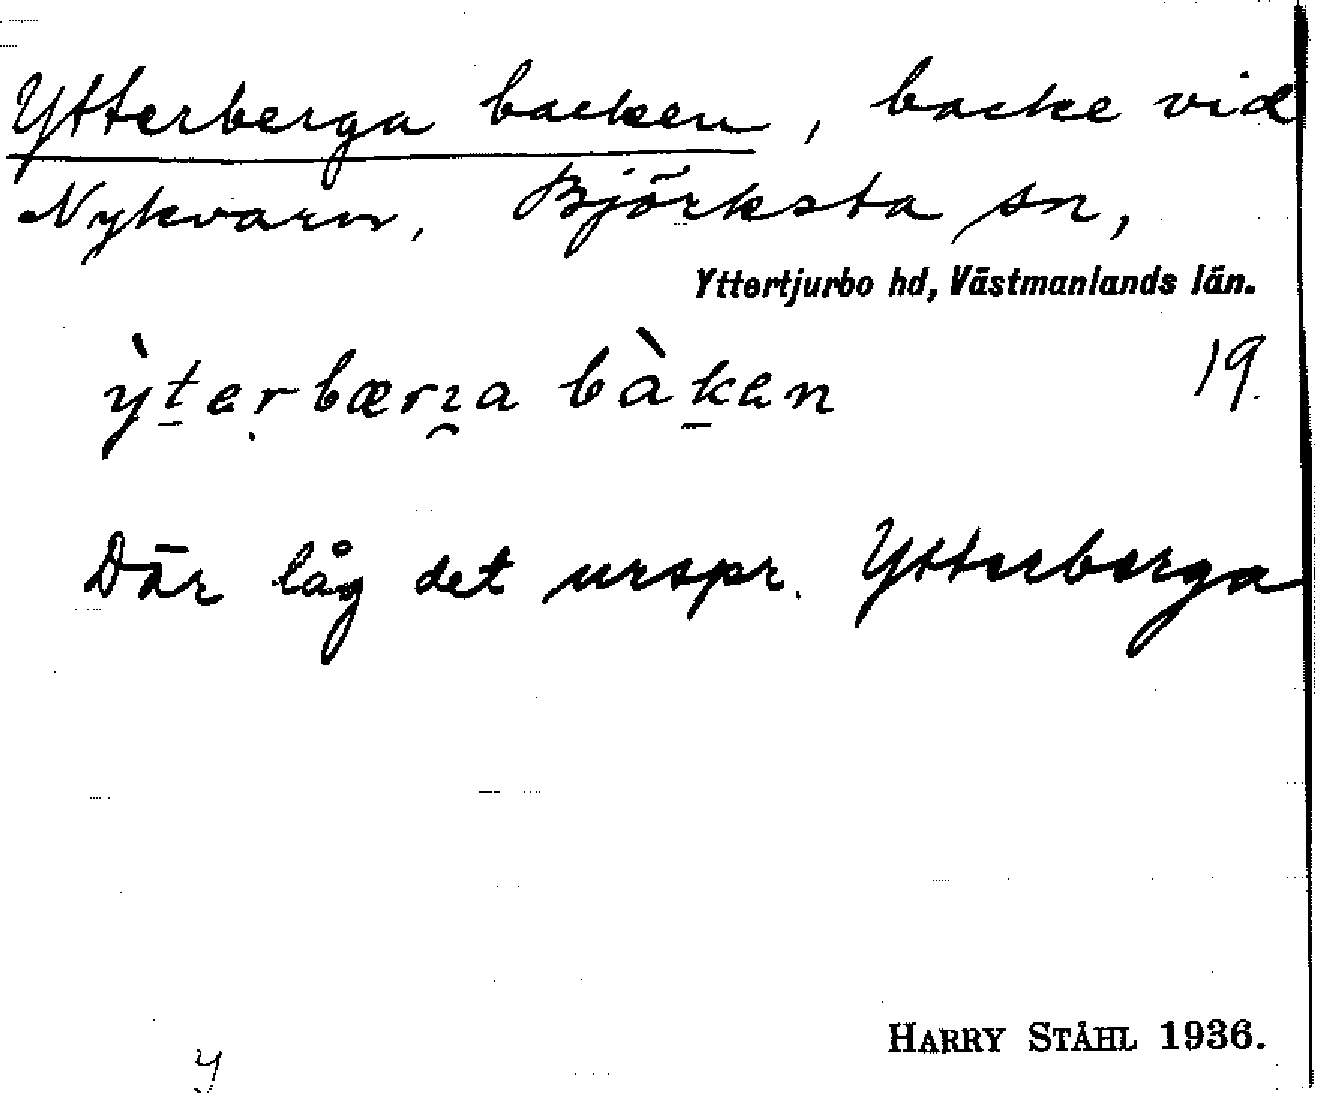 Ytterberga backen, backe vid
Nykvarn, Björksta sn,
Yttertjurbo hd, Västmanlands län.
ỳt̠erḅærɿ̯a bàk̠en 19.
Där låg det urspr. Ytterberga
HARRY STÅHL 1936.
y